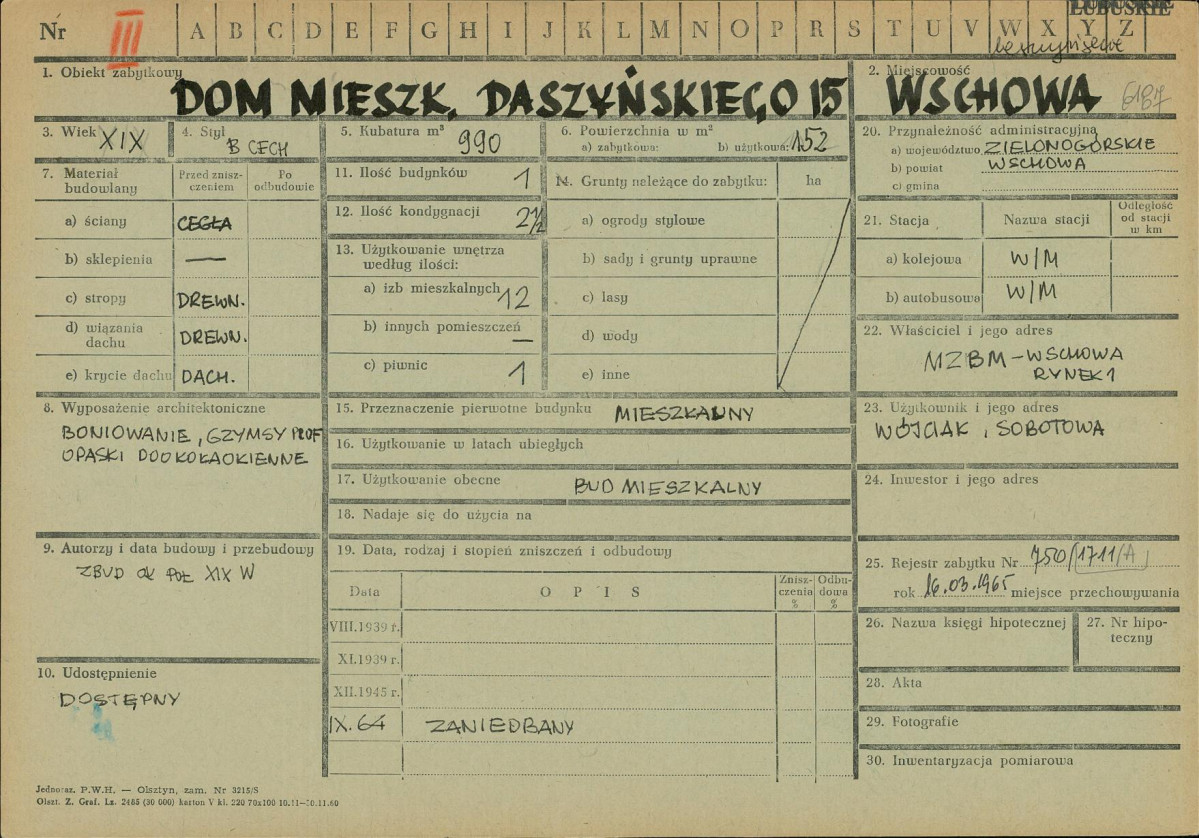 LUBUSKIE
Nr III A B C D E F G H I J K L M N O P R S T U V W X Y Z
1. Obiekt zabytkowy
DOM MIESZK. DASZYŃSKIEGO 15
2. Miejscowość
WSCHOWA 6187
3. Wiek XIX
4. Styl
B CECH
5. Kubatura m³
990
6. Powierzchnia w m²
a) zabytkowa: b) użytkowa: 152
20. Przynależność administracyjna
a) województwo ZIELONOGÓRSKIE
b) powiat WSCHOWA
c) gmina
7. Materiał budowlany
Przed zniszczeniem
Po odbudowie
a) ściany CEGŁA
b) sklepienia —
c) stropy DREWN.
d) wiązania dachu DREWN.
e) krycie dachu DACH.
11. Ilość budynków 1
12. Ilość kondygnacji 2½
13. Użytkowanie wnętrza
według ilości:
a) izb mieszkalnych 12
b) innych pomieszczeń —
c) piwnic 1
14. Grunty należące do zabytku: ha
a) ogrody stylowe
b) sady i grunty uprawne
c) lasy
d) wody
e) inne
21. Stacja
Nazwa stacji
Odległość od stacji w km
a) kolejowa W/M
b) autobusowa W/M
22. Właściciel i jego adres
MZBM – WSCHOWA
RYNEK 1
8. Wyposażenie architektoniczne
BONIOWANIE, GZYMSY PROF
OPASKI DOOKOŁAOKIENNE
15. Przeznaczenie pierwotne budynku MIESZKALNY
16. Użytkowanie w latach ubiegłych
17. Użytkowanie obecne BUD MIESZKALNY
18. Nadaje się do użycia na
23. Użytkownik i jego adres
WÓJCIAK, SOBOTOWA
24. Inwestor i jego adres
9. Autorzy i data budowy i przebudowy
ZBUD OK POŁ XIX W
19. Data, rodzaj i stopień zniszczeń i odbudowy
Data OPIS Zniszczenia % Odbudowa %
VIII.1939 r.
XI.1939 r.
XII.1945 r.
IX.64 ZANIEDBANY
25. Rejestr zabytku Nr 750/1711/A
rok 16.03.1965 miejsce przechowywania
26. Nazwa księgi hipotecznej
27. Nr hipoteczny
10. Udostępnienie
DOSTĘPNY
28. Akta
29. Fotografie
30. Inwentaryzacja pomiarowa
Jednoraz. P.W.H. — Olsztyn, zam. Nr 3215/S